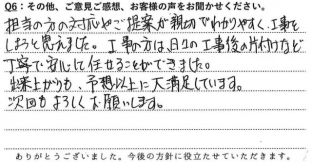 Q6：その他、ご意見ご感想、お客様の声をお聞かせください。
担当の方の対応やご提案が親切でわかりやすく、工事を
しようと思えました。工事の方は、日々の工事後の片付けなど
丁寧で安心して任せることができました。
出来上がりも、予想以上に大満足しています。
次回もよろしくお願いします。
ありがとうございました。今後の方針に役立たせていただきます。